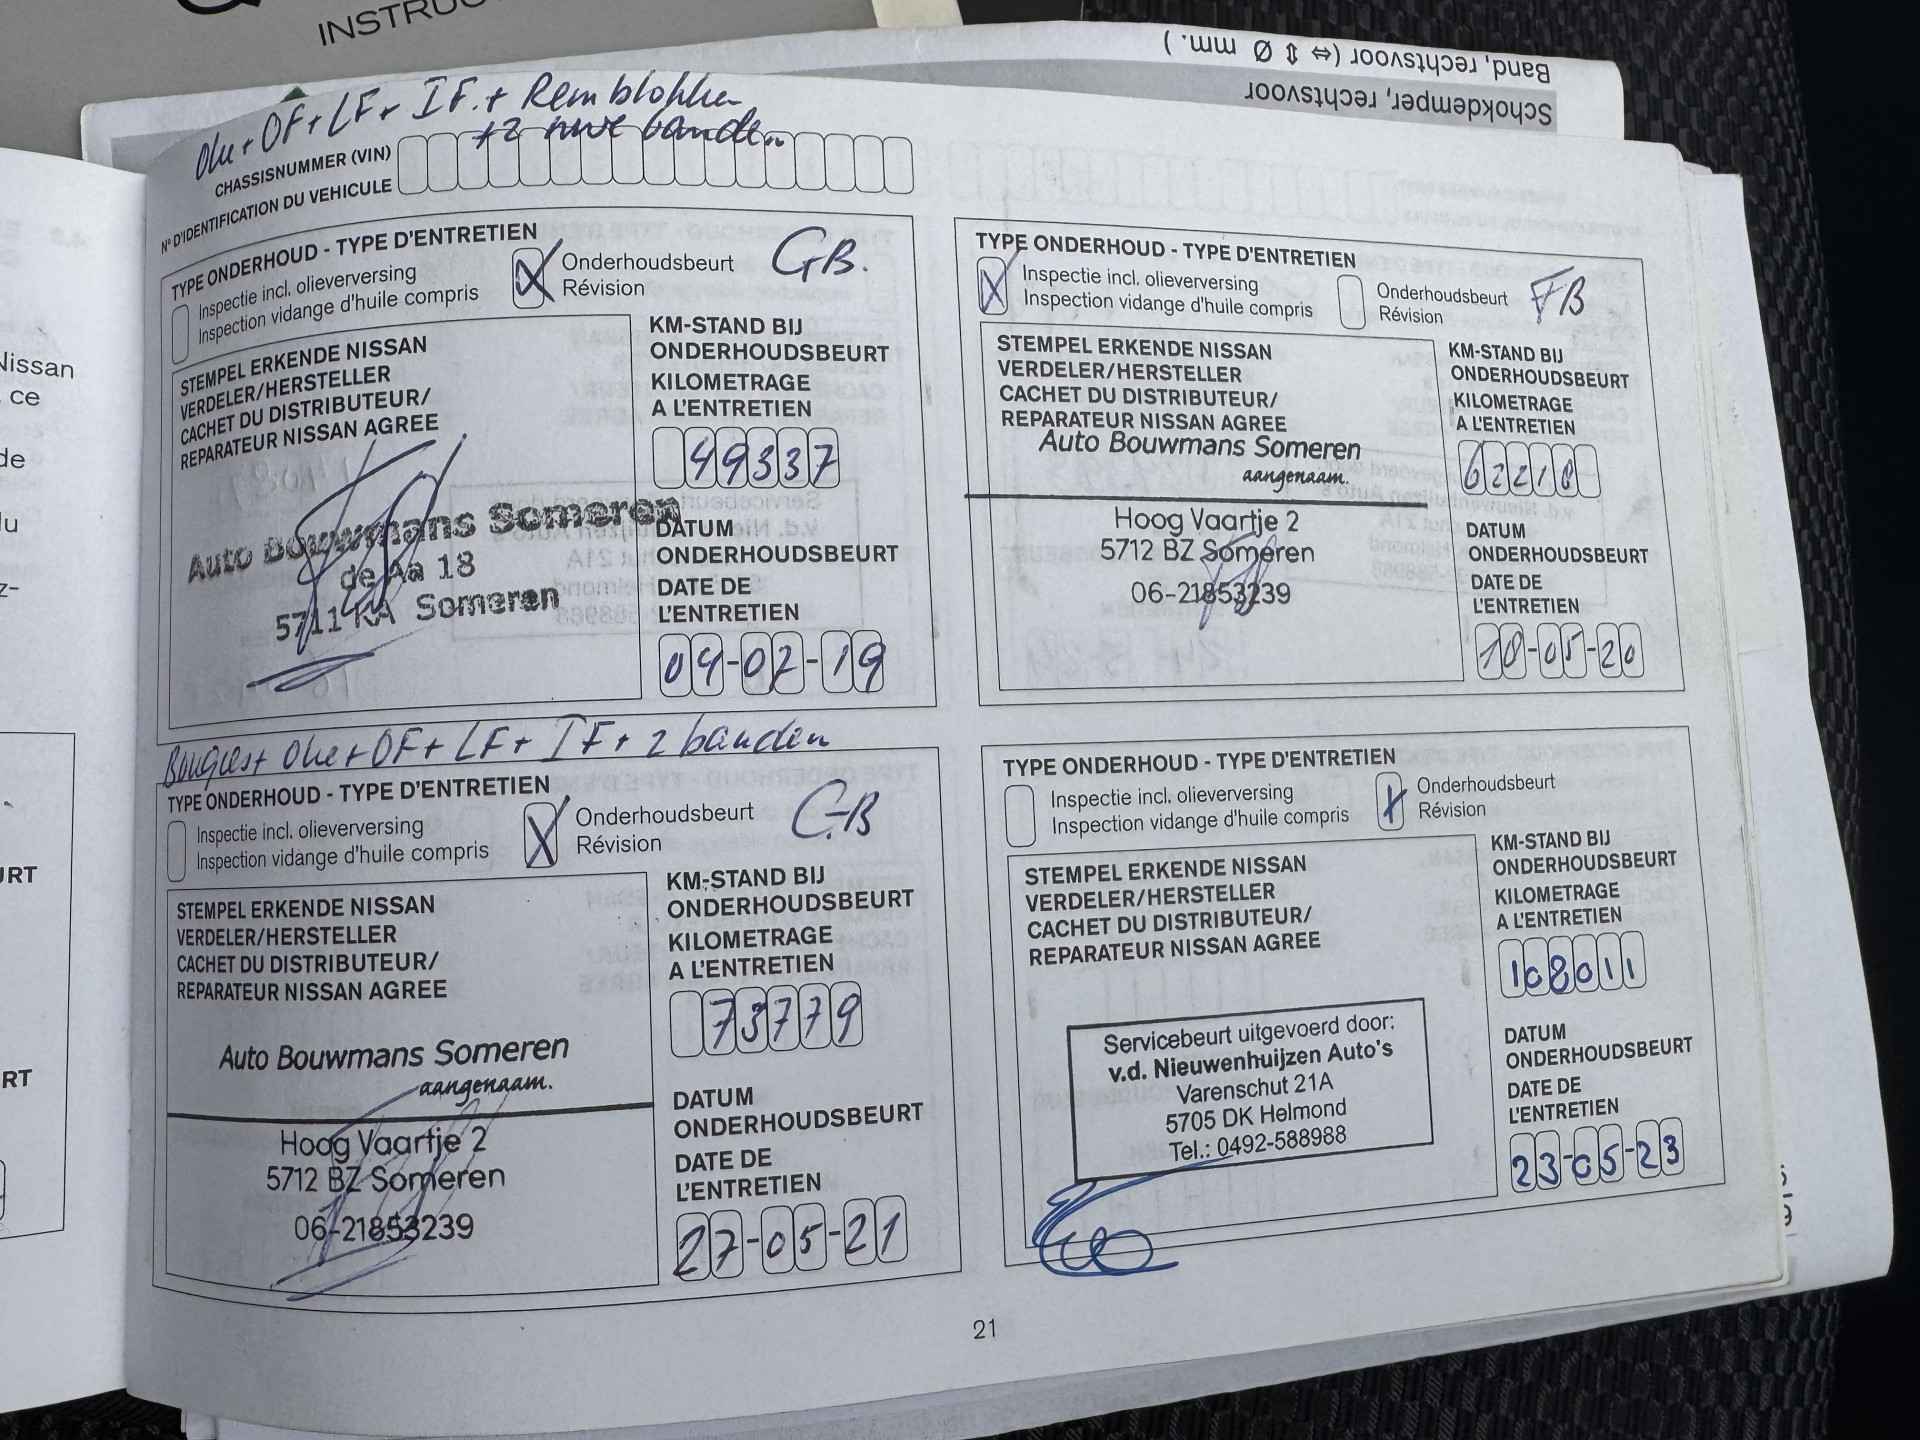 INSTRUC
Band, rechtsvoor (⇔ ⇕ Ø mm. )
Schokdemper, rechtsvoor
Nissan
ce
de
du
z-
URT
RT
Olie + OF + LF + IF. + Remblokken
+2 nwe banden
CHASSISNUMMER (VIN)
N° D'IDENTIFICATION DU VEHICULE
TYPE ONDERHOUD - TYPE D'ENTRETIEN
Inspectie incl. olieverversing
Inspection vidange d'huile compris
X Onderhoudsbeurt
Révision
GB.
STEMPEL ERKENDE NISSAN
VERDELER/HERSTELLER
CACHET DU DISTRIBUTEUR/
REPARATEUR NISSAN AGREE
Auto Bouwmans Someren
de Aa 18
5711 KA Someren
KM-STAND BIJ
ONDERHOUDSBEURT
KILOMETRAGE
A L'ENTRETIEN
49337
DATUM
ONDERHOUDSBEURT
DATE DE
L'ENTRETIEN
04-02-19
TYPE ONDERHOUD - TYPE D'ENTRETIEN
X Inspectie incl. olieverversing
Inspection vidange d'huile compris
Onderhoudsbeurt
Révision
FB
STEMPEL ERKENDE NISSAN
VERDELER/HERSTELLER
CACHET DU DISTRIBUTEUR/
REPARATEUR NISSAN AGREE
Auto Bouwmans Someren
aangenaam.
Hoog Vaartje 2
5712 BZ Someren
06-21853239
KM-STAND BIJ
ONDERHOUDSBEURT
KILOMETRAGE
A L'ENTRETIEN
62218
DATUM
ONDERHOUDSBEURT
DATE DE
L'ENTRETIEN
18-05-20
Bougies+ Olie + OF + LF + IF + 2 banden
TYPE ONDERHOUD - TYPE D'ENTRETIEN
Inspectie incl. olieverversing
Inspection vidange d'huile compris
X Onderhoudsbeurt
Révision
GB
STEMPEL ERKENDE NISSAN
VERDELER/HERSTELLER
CACHET DU DISTRIBUTEUR/
REPARATEUR NISSAN AGREE
Auto Bouwmans Someren
aangenaam.
Hoog Vaartje 2
5712 BZ Someren
06-21853239
KM-STAND BIJ
ONDERHOUDSBEURT
KILOMETRAGE
A L'ENTRETIEN
73779
DATUM
ONDERHOUDSBEURT
DATE DE
L'ENTRETIEN
27-05-21
TYPE ONDERHOUD - TYPE D'ENTRETIEN
Inspectie incl. olieverversing
Inspection vidange d'huile compris
X Onderhoudsbeurt
Révision
STEMPEL ERKENDE NISSAN
VERDELER/HERSTELLER
CACHET DU DISTRIBUTEUR/
REPARATEUR NISSAN AGREE
Servicebeurt uitgevoerd door:
v.d. Nieuwenhuijzen Auto's
Varenschut 21A
5705 DK Helmond
Tel.: 0492-588988
KM-STAND BIJ
ONDERHOUDSBEURT
KILOMETRAGE
A L'ENTRETIEN
108011
DATUM
ONDERHOUDSBEURT
DATE DE
L'ENTRETIEN
23-05-23
21